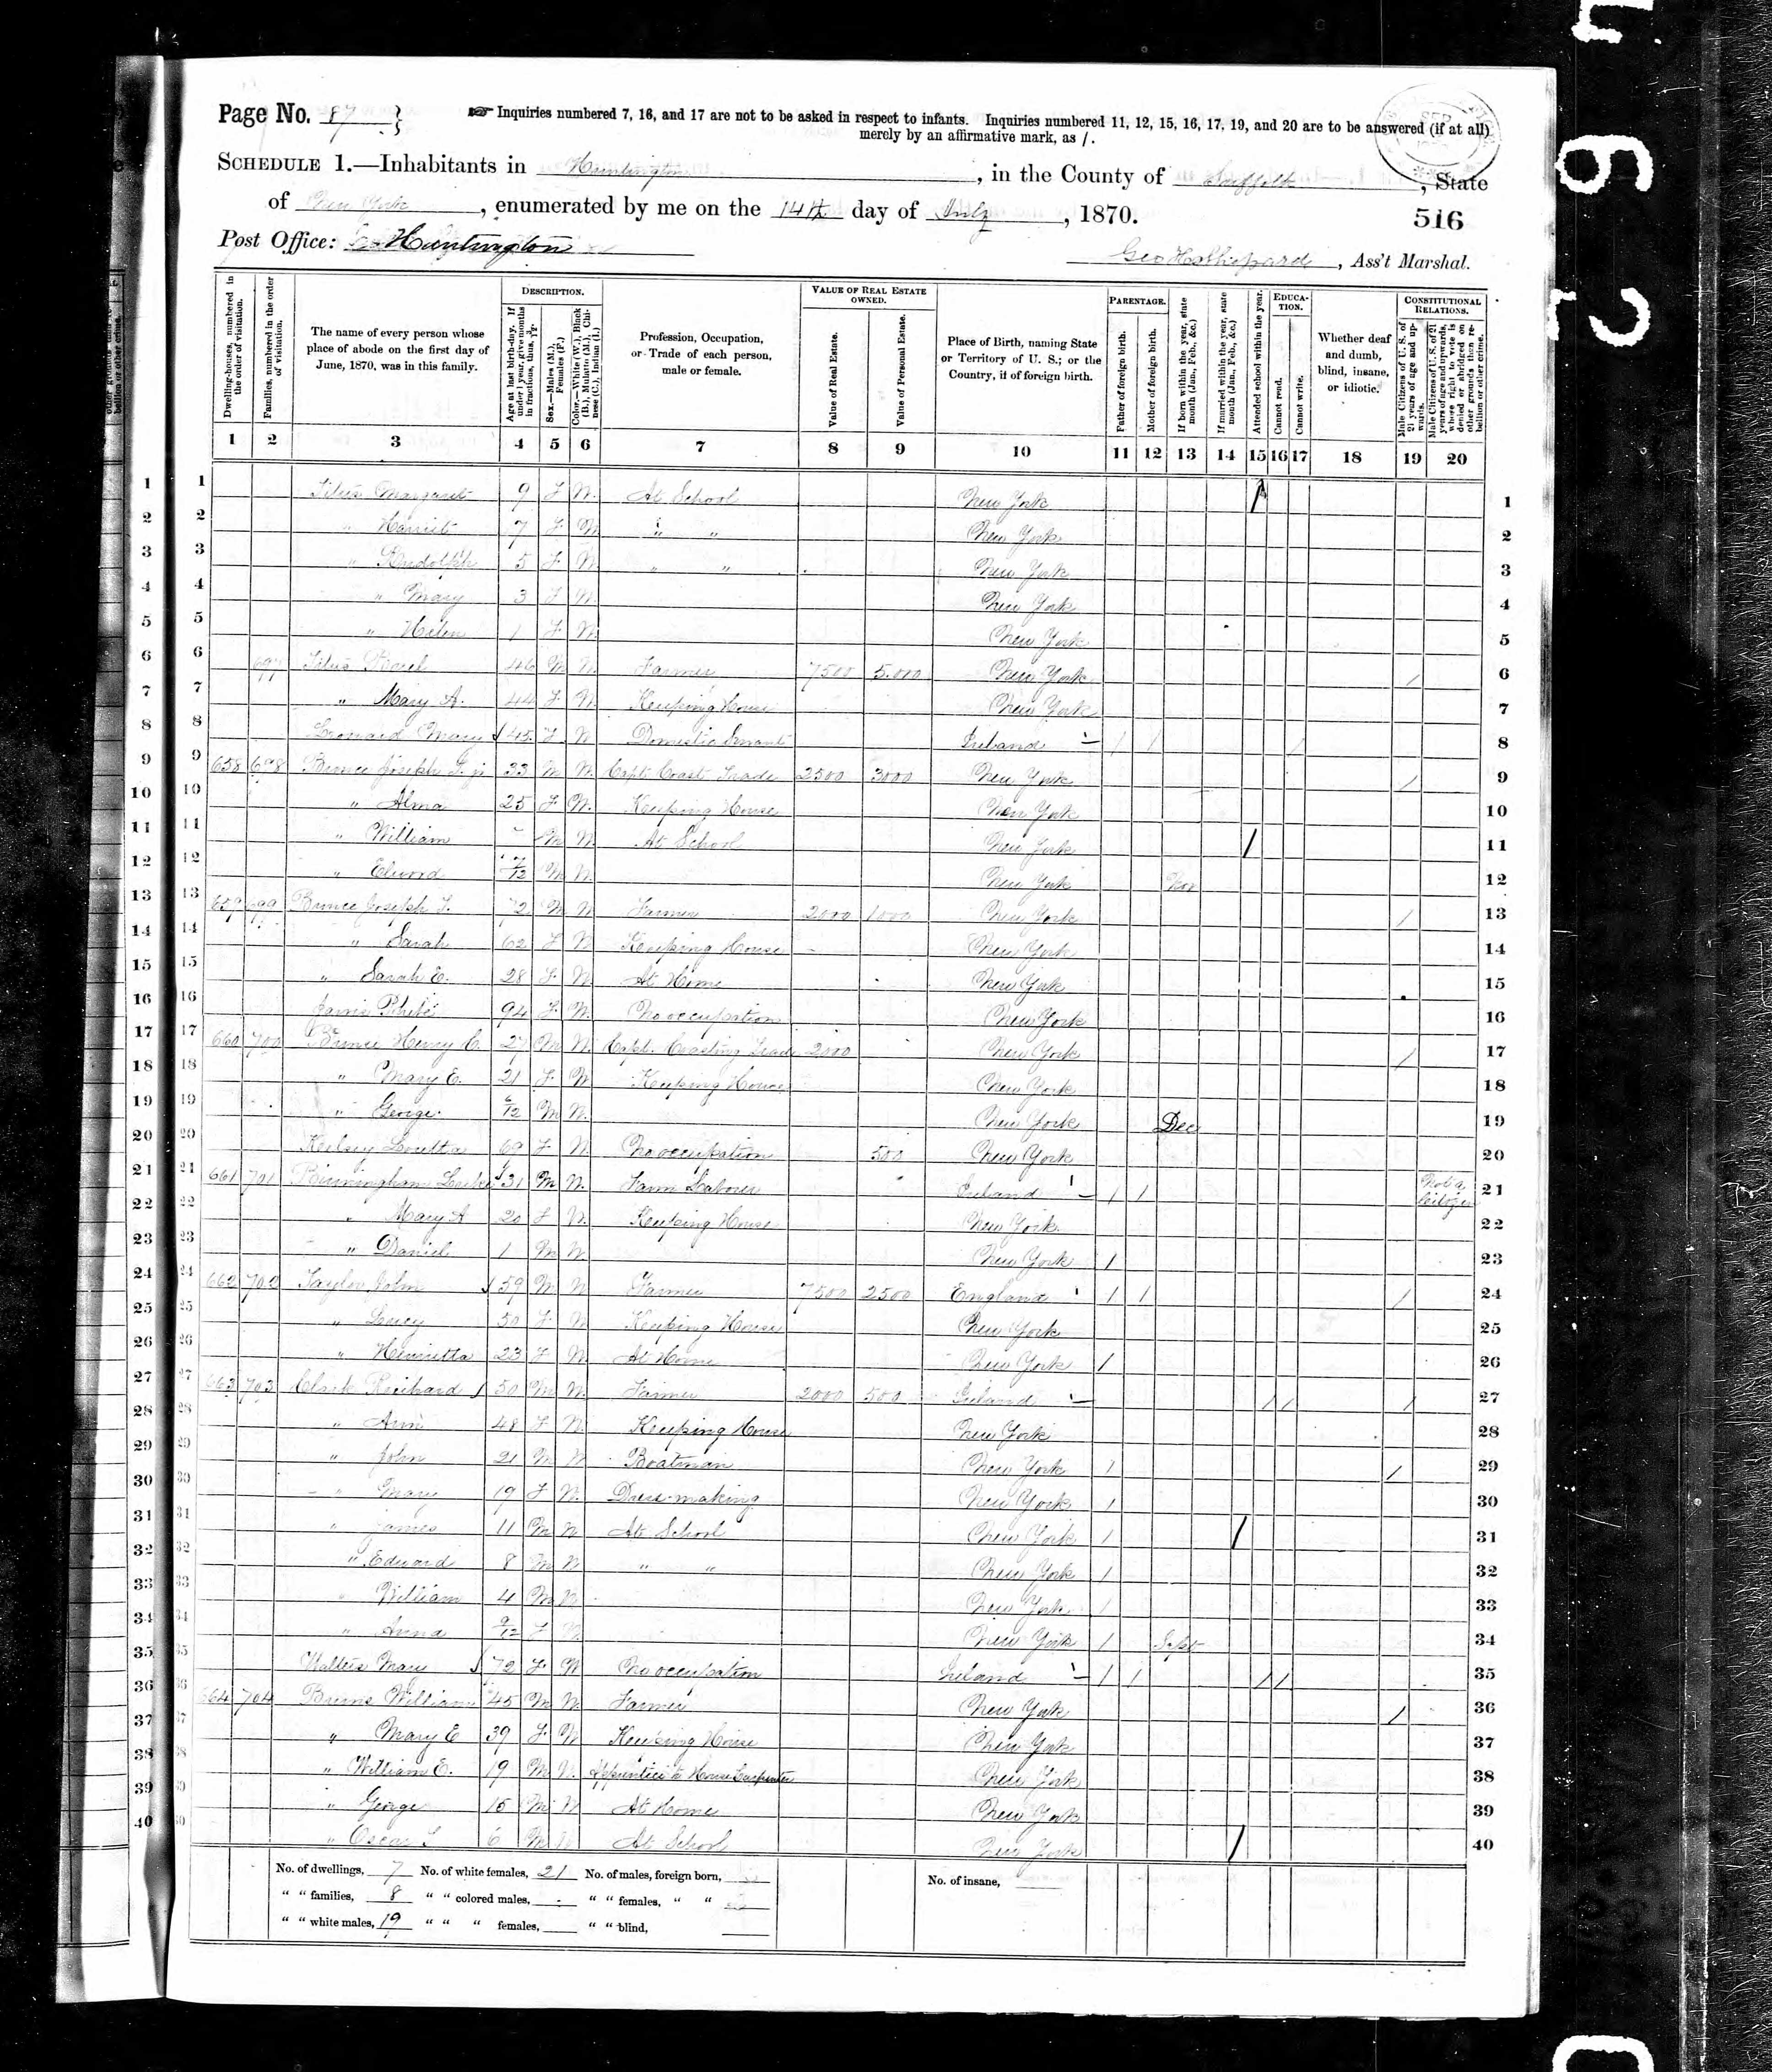 Page No. 87
Inquiries numbered 7, 16, and 17 are not to be asked in respect to infants. Inquiries numbered 11, 12, 15, 16, 17, 19, and 20 are to be answered (if at all)
merely by an affirmative mark, as /.
SCHEDULE 1.—Inhabitants in Huntington, in the County of Suffolk, State
of New York, enumerated by me on the 14th day of July, 1870.
516
Post Office: Huntington
Geo H Shepard, Ass't Marshal.
Dwelling-houses, numbered in the order of visitation.
Families, numbered in the order of visitation.
The name of every person whose place of abode on the first day of June, 1870, was in this family.
DESCRIPTION.
Age at last birth-day. If under 1 year, give months in fractions, thus, 3/12.
Sex.—Males (M.), Females (F.)
Color.—White (W.), Black (B.), Mulatto (M.), Chinese (C.), Indian (I.)
Profession, Occupation, or Trade of each person, male or female.
VALUE OF REAL ESTATE OWNED.
Value of Real Estate.
Value of Personal Estate.
Place of Birth, naming State or Territory of U. S.; or the Country, if of foreign birth.
PARENTAGE.
Father of foreign birth.
Mother of foreign birth.
If born within the year, state month (Jan., Feb., &c.)
If married within the year, state month (Jan., Feb., &c.)
Attended school within the year.
EDUCATION.
Cannot read.
Cannot write.
Whether deaf and dumb, blind, insane, or idiotic.
CONSTITUTIONAL RELATIONS.
Male Citizens of U. S. of 21 years of age and upwards.
Male Citizens of U. S. of 21 years of age and upwards, where right to vote is denied or abridged on other grounds than rebellion or other crime.
1 2 3 4 5 6 7 8 9 10 11 12 13 14 15 16 17 18 19 20
1 Titus Margaret 9 F W At School New York / 1
2 " Harriet 7 F W " " New York 2
3 " Rudolph 5 F W " " New York 3
4 " Mary 3 F W New York 4
5 " Helen 1 F W New York 5
6 697 Titus 46 M W Farmer 7500 5.000 New York / 6
7 " Mary A. 44 F W Keeping House New York 7
8 Leonard Mary 45 F W Domestic Servant Ireland / / / 8
9 658 698 Bunce Joseph S. jr 33 M W Capt Coast Trade 2500 3000 New York / 9
10 " Alma 25 F W Keeping House New York 10
11 " William M W At School New York / 11
12 " Elwood 7/12 M W New York Nov 12
13 659 699 Bunce Joseph S. 72 M W Farmer 2000 1000 New York / 13
14 " Sarah 62 F W Keeping House New York 14
15 " Sarah E. 28 F W At Home New York 15
16 Jarvis 94 F W No occupation New York 16
17 660 700 Bunce Henry C. 27 M W Capt. Coasting Trade 2000 New York / 17
18 " Mary E. 21 F W Keeping House New York 18
19 " George 6/12 M W New York Dec 19
20 Kelsey Loretta 69 F W No occupation 500 New York 20
21 661 701 Birmingham 31 M W Farm Laborer Ireland / / Not a Citizen 21
22 " Mary A 20 F W Keeping House New York 22
23 " Daniel 1 M W New York / 23
24 662 702 Taylor John 59 M W Farmer 7500 2500 England / / / 24
25 " Lucy 50 F W Keeping House New York 25
26 " Henrietta 23 F W At Home New York / 26
27 663 703 Clark Richard 50 M W Farmer 2000 500 Ireland / / / 27
28 " Ann 48 F W Keeping House New York 28
29 " John 21 M W Boatman New York / / 29
30 " Mary 19 F W Dress-making New York / 30
31 " James 11 M W At School New York / / 31
32 " Edward 8 M W " " New York / 32
33 " William 4 M W New York / 33
34 " Anna 9/12 F W New York / Sept 34
35 Walters Mary 72 F W No occupation Ireland / / / / 35
36 664 704 Bunce William 45 M W Farmer New York / 36
37 " Mary E 39 F W Keeping House New York 37
38 " William E. 19 M W Apprentice to House Carpenter New York 38
39 " George 15 M W At Home New York 39
40 " Oscar S 6 M W At School New York / 40
No. of dwellings, 7 No. of white females, 21 No. of males, foreign born,
No. of insane,
" " families, 8 " " colored males, - " " females, " "
" " white males, 19 " " " females, " " blind,